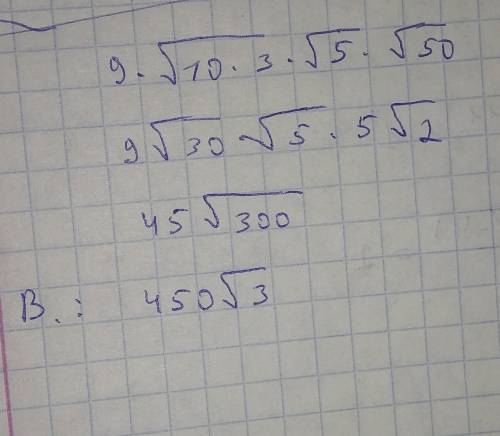 9 · √10 · 3 · √5 · √50
9√30 · √5 · 5√2
45√300
В.: 450√3